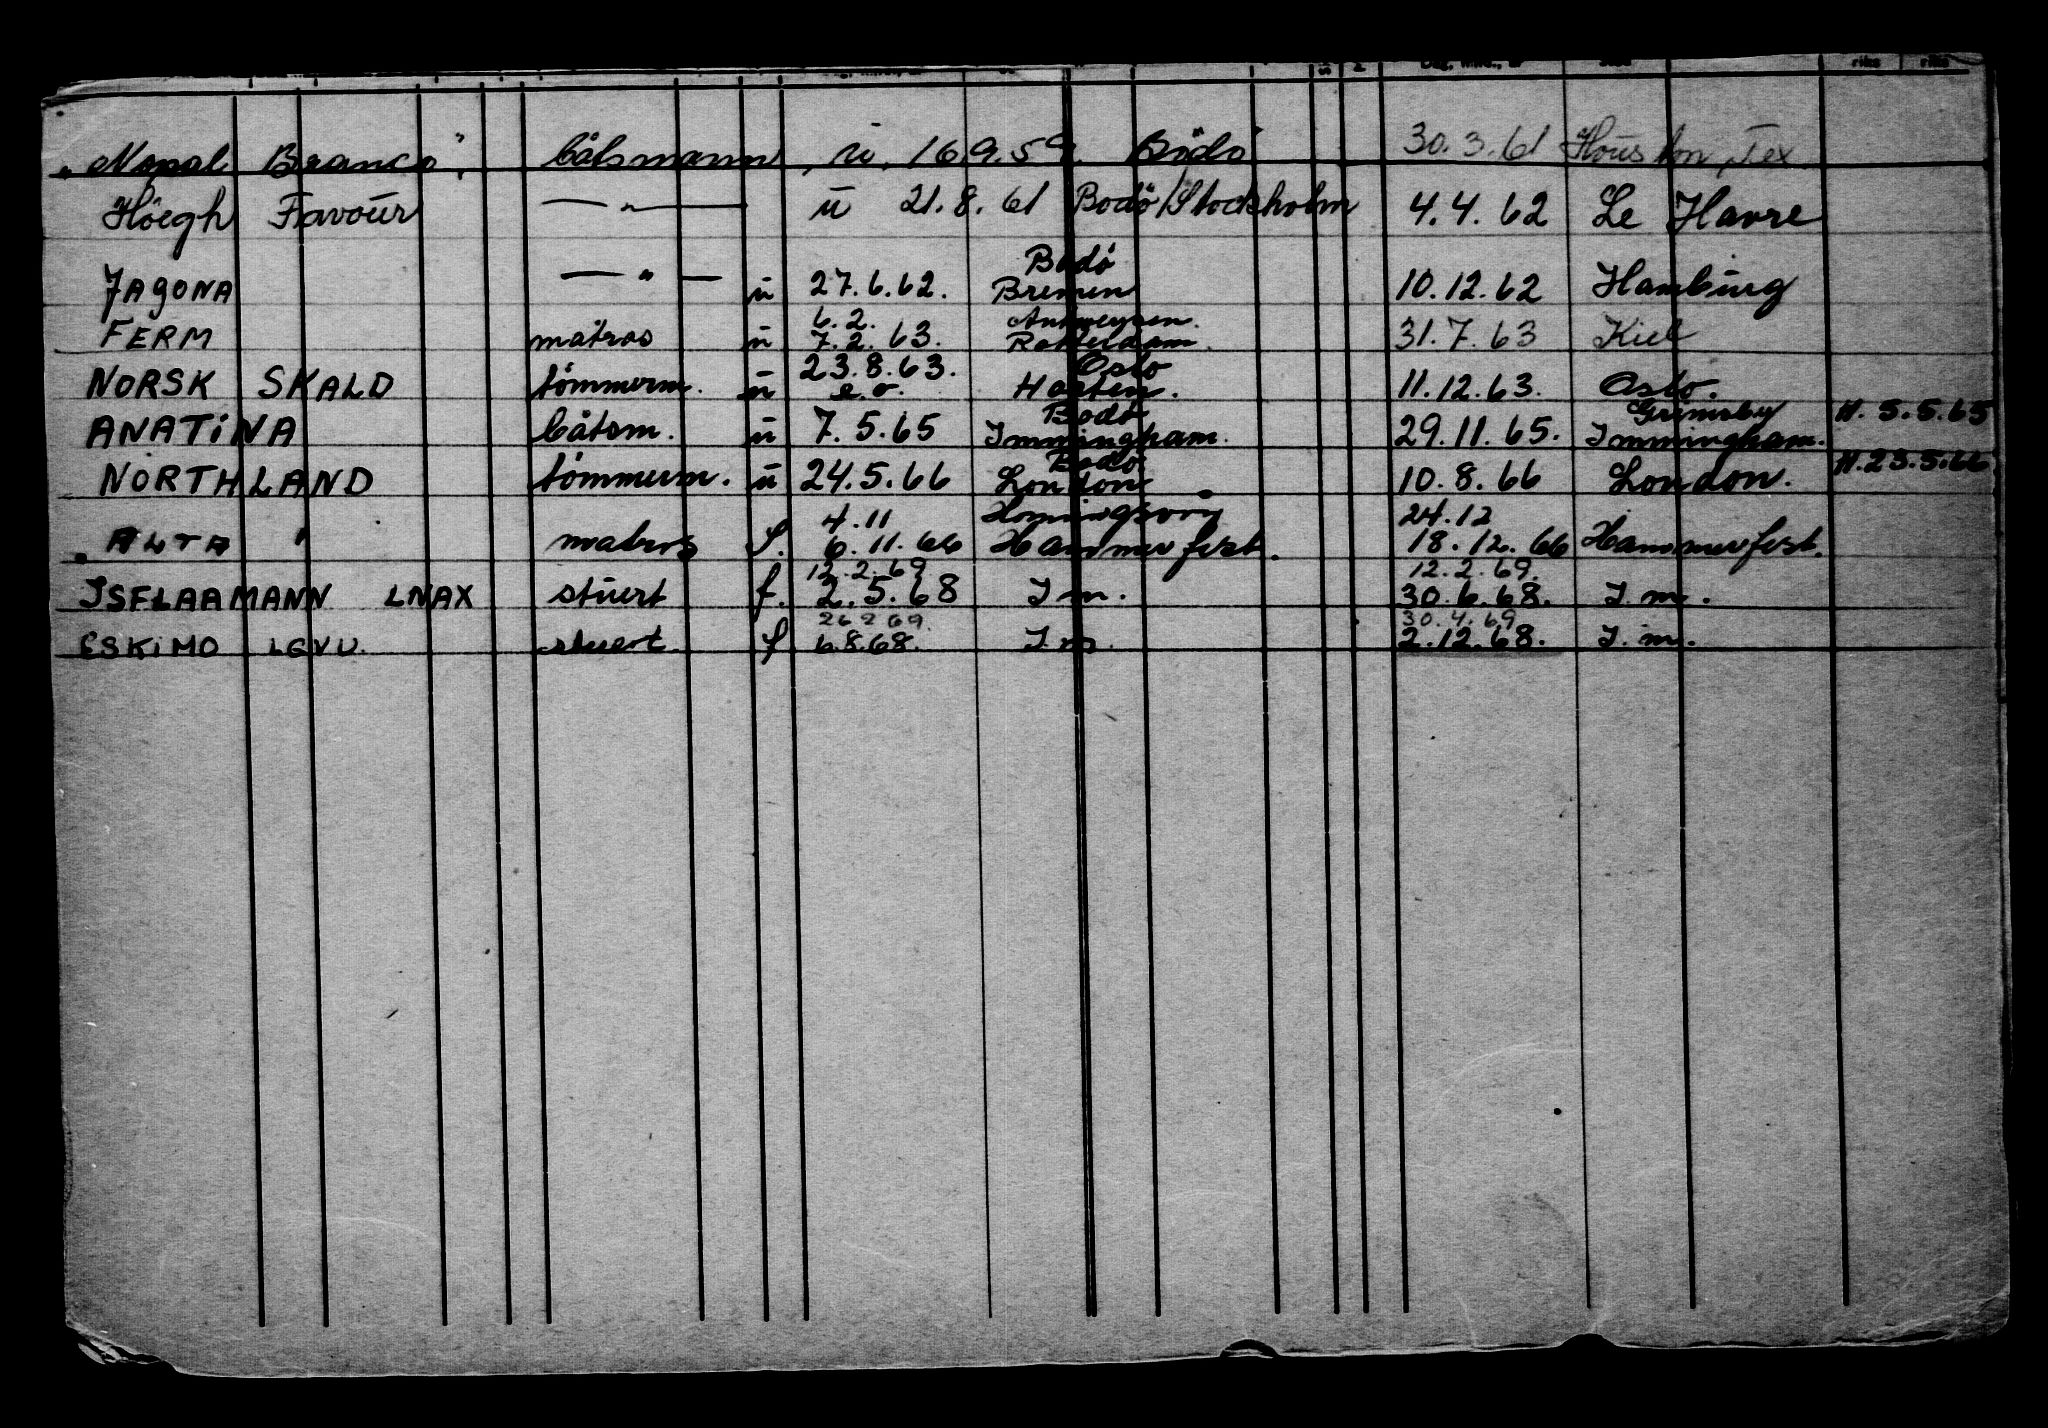 "Nopal Branco", båtsmann, u. 16.9.59. Bodö 30.3.61 Houston, Tex
Höegh Favour — " — u 21.8.61 Bodö/Stockholm 4.4.62 Le Havre
Bodö
JAGONA — " — u 27.6.62. Bremen 10.12.62 Hamburg
6.2. Antwerpen.
FERM matros u 7.2.63. Rotterdam. 31.7.63 Kiel
23.8.63. Oslo
NORSK SKALD tömmerm. u e.o. Horten. 11.12.63. Oslo.
Bodö Grimsby H. 5.5.65
ANATINA båtsm. u 7.5.65 Immingham. 29.11.65. Immingham.
Bodö H. 23.5.66
NORTHLAND tömmerm. u 24.5.66 London 10.8.66 London.
4.11 Honningsvåg 24.12
"ALTA" matros f. 6.11.66 Hammerfest. 18.12.66 Hammerfest.
12.2.69 12.2.69.
ISFLAAMANN LNAX stuert f. 2.5.68 I m. 30.6.68. I. m.
26 2 69. 30.4.69
ESKIMO LGVU. stuert. f 6.8.68. I. m. 2.12.68. I. m.